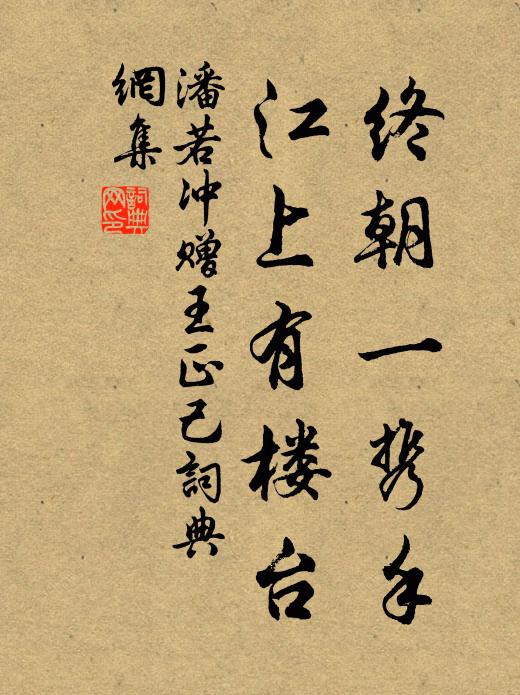 终朝一携手
江上有楼台
潘若冲赠王正己詞典
網集
詞典
网印